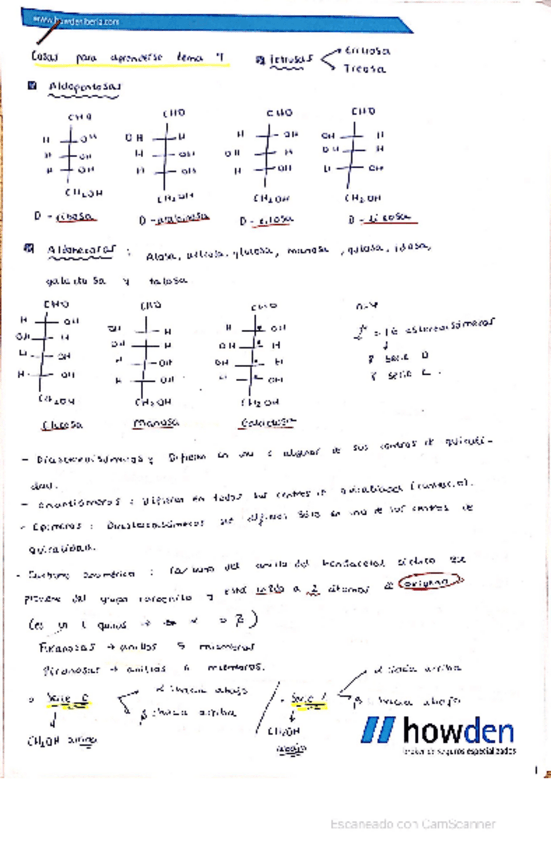 www.howdeniberia.com
Cosas para aprenderse tema 4
Tetrosas
Eritrosa
Treosa
Aldopentosas
CHO CHO CHO CHO
H OH OH H H OH OH H
H OH H OH OH H OH H
H OH H OH H OH H OH
CH2OH CH2OH CH2OH CH2OH
D-ribosa D-arabinosa D-xilosa D-lixosa
Aldohexosas : Alosa, altrosa, glucosa, manosa, gulosa, idosa,
galactosa y talosa
CHO CHO CHO n=4
H OH OH H H OH
= 16 estereoisómeros
OH H OH H OH H
8 serie D
H OH H OH OH H
8 serie L
H OH H OH H OH
CH2OH CH2OH CH2OH
Glucosa Manosa Galactosa
- Diastereoisómeros y Difieren en uno o algunos de sus centros de quirali-
dad.
- Enantiómeros : Difieren en todos sus centros de quiralidad
- Epímeros : Diastereoisómeros que difieren sólo en uno de sus centros de
quiralidad.
- Carbono anomérico : Carbono del anillo del hemiacetal cíclico que
proviene del grupo carbonilo y está unido a 2 átomos de oxígeno
(es un C quiral → α o β)
Furanosas → anillos 5 miembros
Piranosas → anillos 6 miembros.
Serie D
α : hacia abajo
β : hacia arriba
CH2OH arriba
Serie L
α hacia arriba
β hacia abajo
CH2OH
abajo
howden
broker de seguros especializados
1
Escaneado con CamScanner